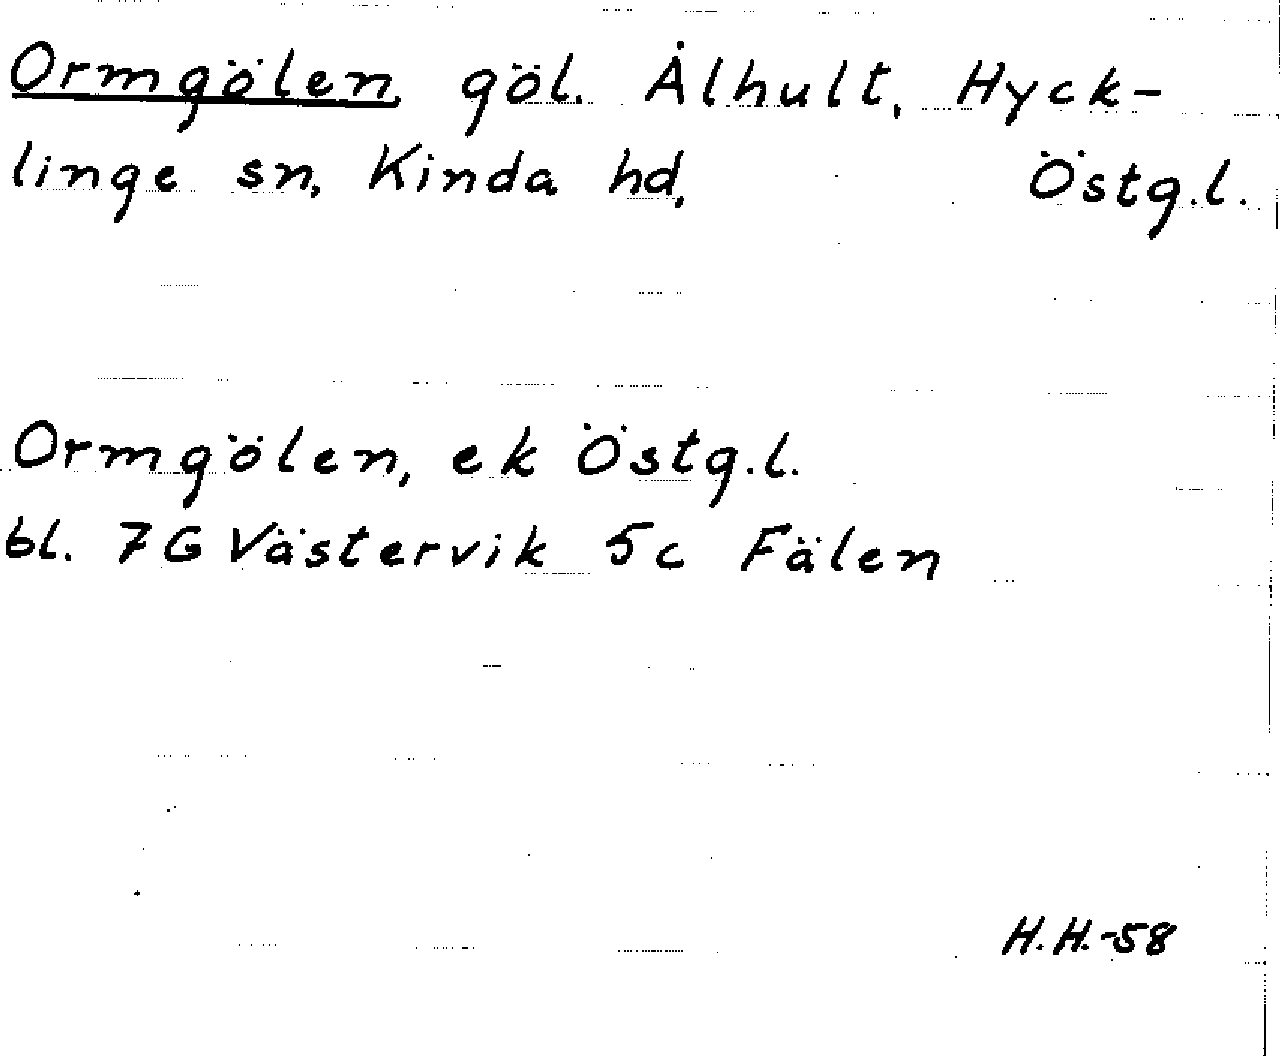 Ormgölen, göl. Ålhult, Hyck-
linge sn, Kinda hd, Östg.l.
Ormgölen, ek Östg.l.
bl. 7G Västervik 5c Fälen
H.H.-58